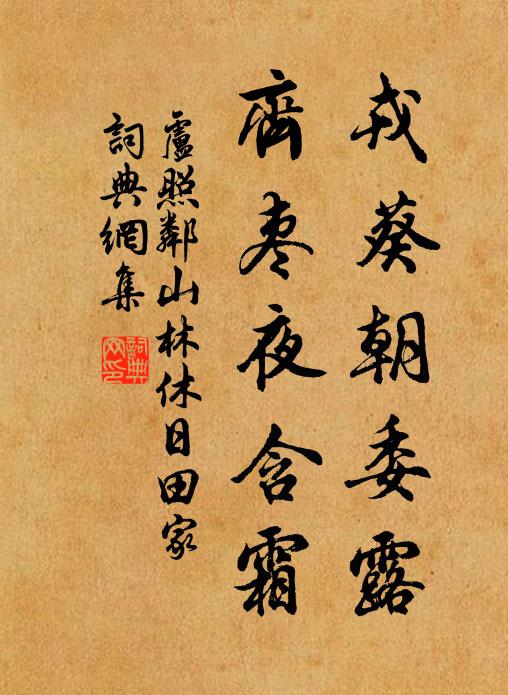 戎葵朝委露
齊枣夜含霜
盧照鄰山林休日田家
詞典網集
詞典网印